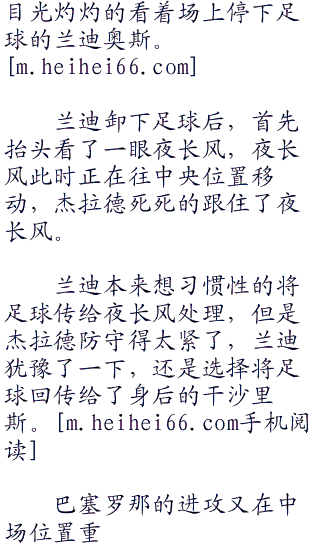 目光灼灼的看着场上停下足
球的兰迪奥斯。
[m.heihei66.com]
兰迪卸下足球后，首先
抬头看了一眼夜长风，夜长
风此时正在往中央位置移
动，杰拉德死死的跟住了夜
长风。
兰迪本来想习惯性的将
足球传给夜长风处理，但是
杰拉德防守得太紧了，兰迪
犹豫了一下，还是选择将足
球回传给了身后的干沙里
斯。[m.heihei66.com手机阅
读]
巴塞罗那的进攻又在中
场位置重